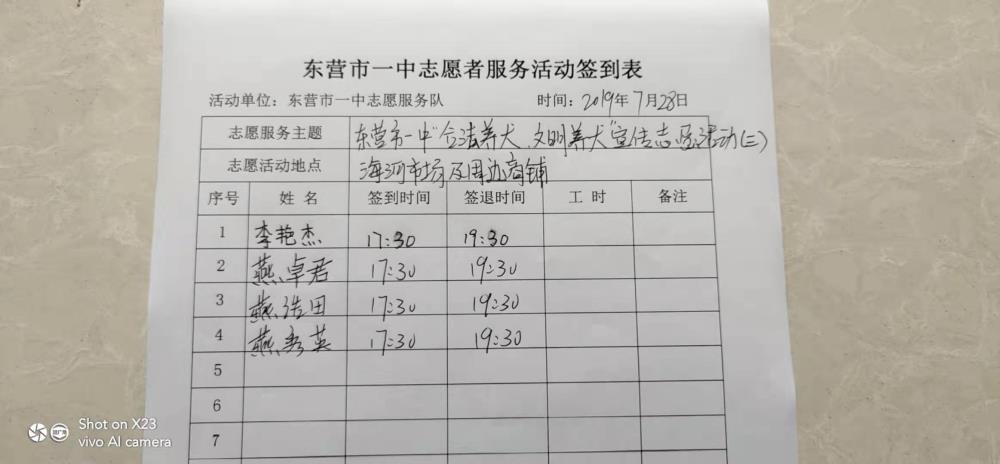 东营市一中志愿者服务活动签到表
活动单位：东营市一中志愿服务队 时间：2019年7月28日
志愿服务主题 东营市一中“合法养犬、文明养犬”宣传志愿活动(三)
志愿活动地点 海河市场及周边商铺
序号 姓名 签到时间 签退时间 工时 备注
1 李艳杰 17:30 19:30
2 燕卓君 17:30 19:30
3 燕浩田 17:30 19:30
4 燕秀英 17:30 19:30
5
6
7
Shot on X23
vivo AI camera